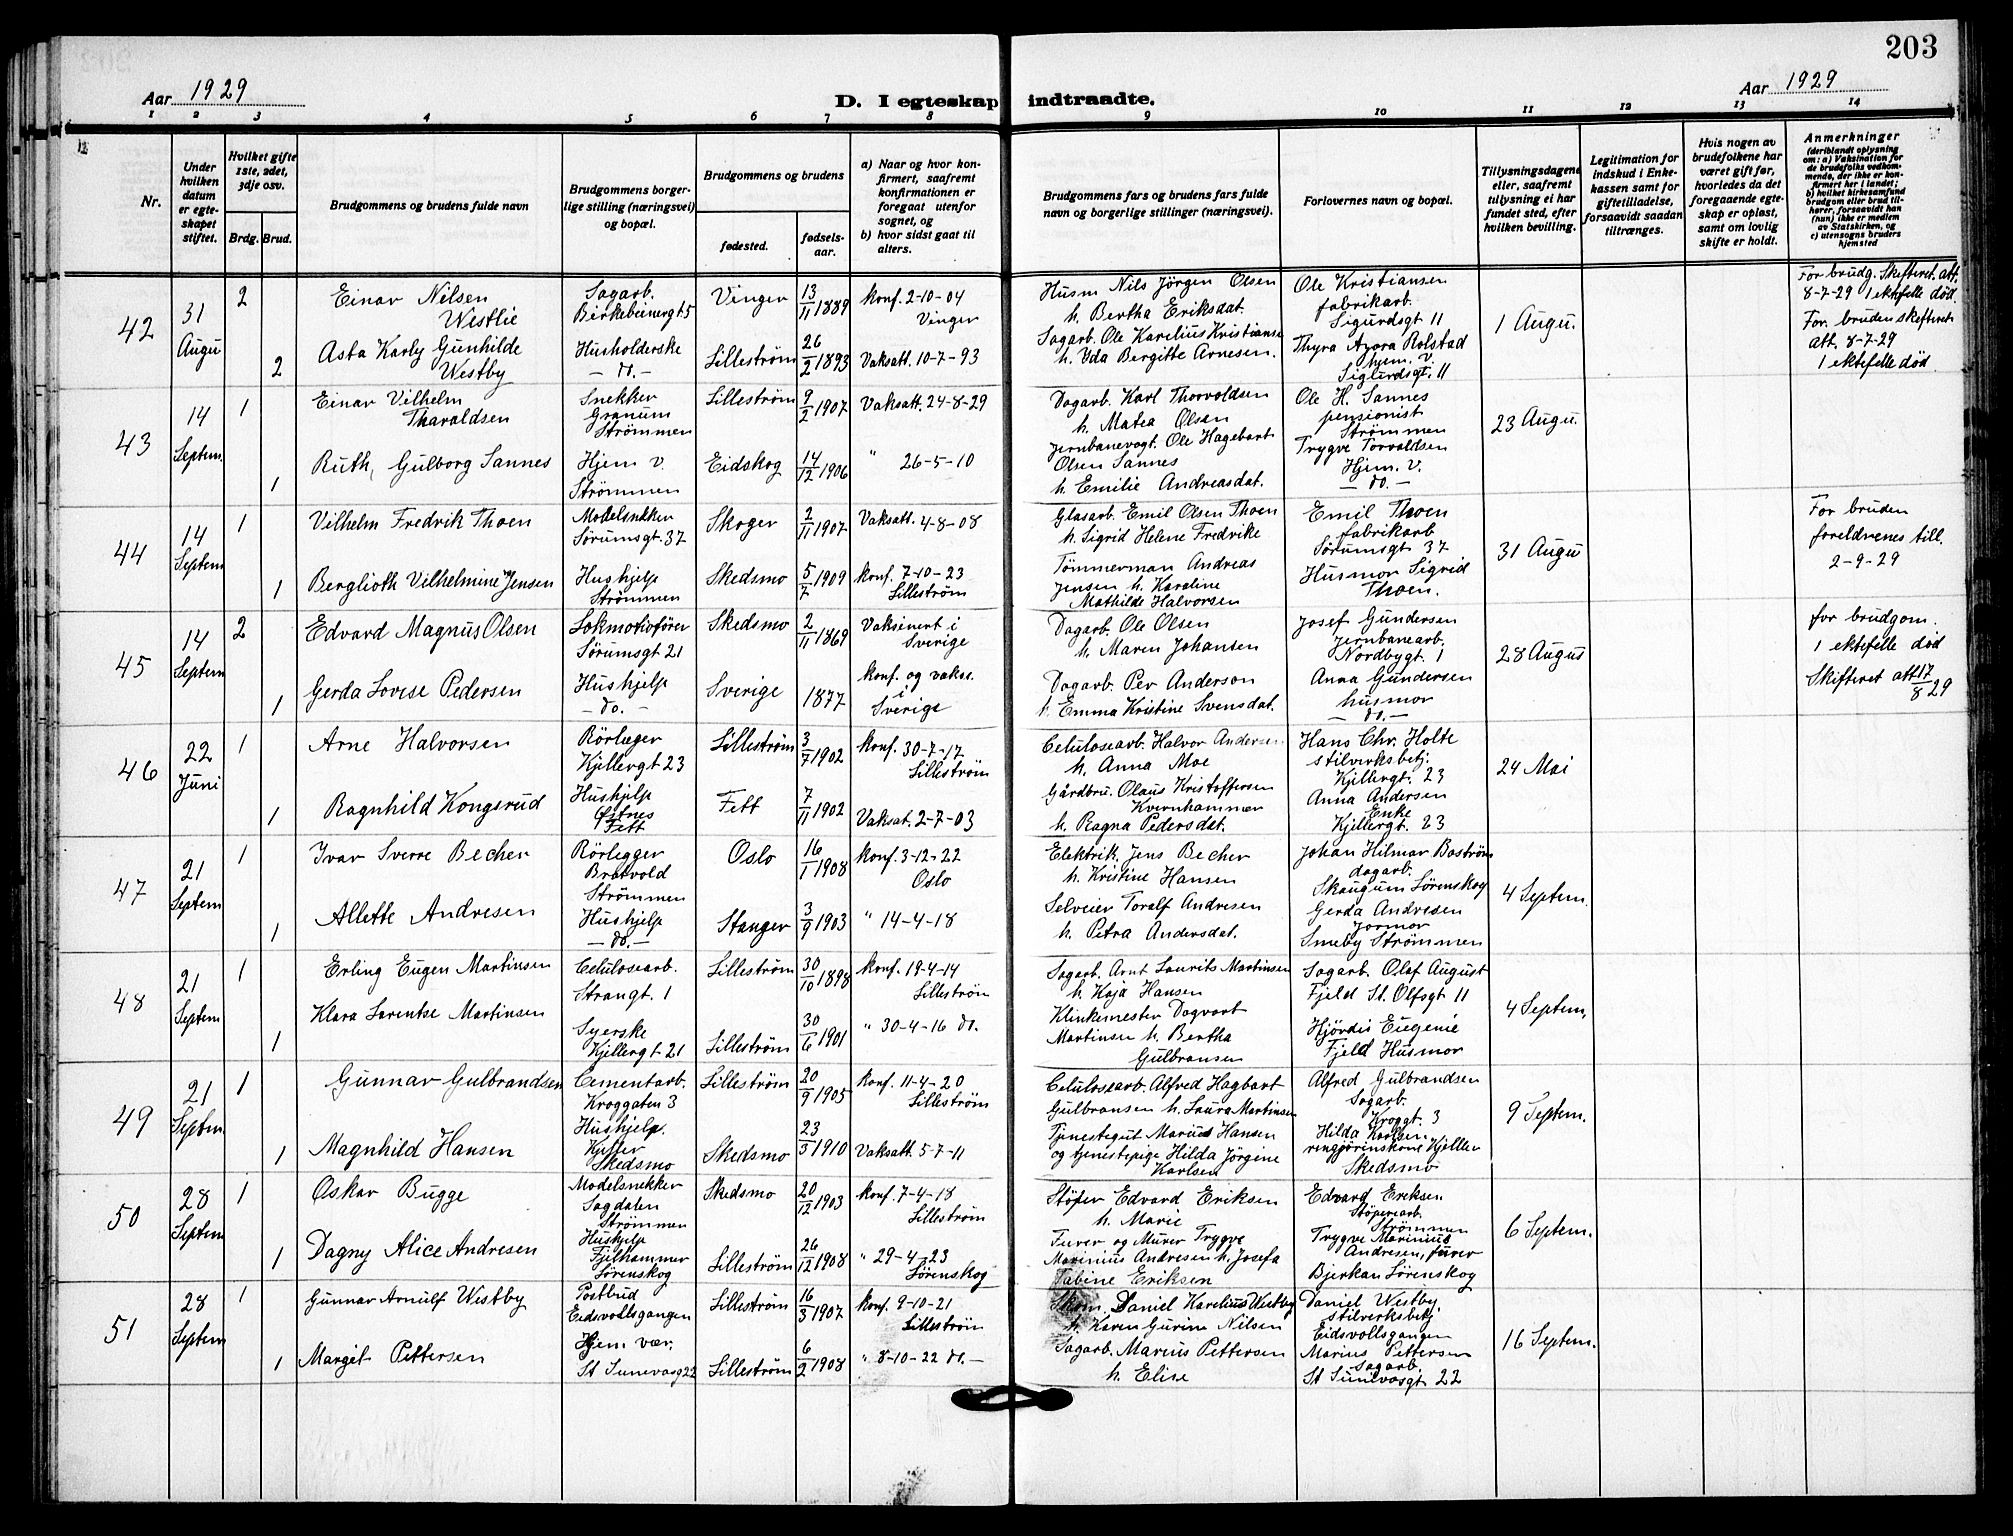 203
Aar 1929
D. I egteskap indtraadte.
Aar 1929
1 2 3 4 5 6 7 8 9 10 11 12 13 14
Nr.
Under hvilken datum er egteskapet stiftet.
Hvilket gifte 1ste, 2det, 3dje osv.
Brdg. Brud.
Brudgommens og brudens fulde navn
Brudgommens borgerlige stilling (næringsvei) og bopæl.
Brudgommens og brudens
fødested.
fødselsaar.
a) Naar og hvor konfirmert, saafremt konfirmationen er foregaat utenfor sognet, og
b) hvor sidst gaat til alters.
Brudgommens fars og brudens fars fulde navn og borgerlige stillinger (næringsvei).
Forlovernes navn og bopæl.
Tillysningsdagene eller, saafremt tillysning ei har fundet sted, efter hvilken bevilling.
Legitimation for indskud i Enkekassen samt for giftetilladelse, forsaavidt saadan tiltrænges.
Hvis nogen av brudefolkene har været gift før, hvorledes da det foregaaende egteskap er opløst, samt om lovlig skifte er holdt.
Anmerkninger
(deriblandt oplysning om: a) Vaksination for de brudefolks vedkommende, der ikke er konfirmert her i landet; b) hvilket kirkesamfund brudgom eller brud tilhører, forsaavidt han (hun) ikke er medlem av Statskirken, og c) utensogns bruders hjemsted
42
31 Augu
2
Einar Nilsen Westlie
Sagarb.
Birkebeinergt 5
Vinger
13/11 1889
Konf. 2-10-04
Vinger
Husm Nils Jörgen Olsen
h. Bertha Eriksdat.
Ole Kristiansen
fabrikarb.
Sigurdsgt 11
1 Augu.
For brudg. Skifteret. att.
8-7-29 1 ektefelle död.
2
Asta Karly Gunhilde Westby
Husholderske
— do. —
Lilleström
26/2 1893
Vaksatt. 10-7-93
Sagarb. Ole Karelius Kristianse
h. Yda Bergitte Arnesen.
Thyra Agora Rolstad
hjem. v.
Sigurdsgt. 11
For bruden skifteret
att. 8-7-29
1 ektefelle död
43
14 Septem.
1
Einar Vilhelm Tharaldsen
Snekker
Granum
Strömmen
Lilleström
9/2 1907
Vaksatt. 24-8-29
Dagarb. Karl Thorvaldsen
h. Matea Olsen
Ole H. Sannes
pensionist
Strömmen
23 Augu.
1
Ruth, Gulborg Sannes
Hjem v.
Strömmen
Eidskog
14/12 1906
" 26-5-10
Jernbanevogt. Ole Hagebart
Olsen Sannes
h. Emilie Andreasdat.
Trygve Torvaldsen
Hjem. v.
— do. —
44
14 Septem
1
Vilhelm Fredrik Thoen
Modelsnekker
Sörumsgt. 37
Skoger
2/11 1907
Vaksatt. 4-8-08
Glasarb. Emil Olsen Thoen
h. Sigrid Helene Fredrike
Emil Thoen
fabrikarb
Sörumsgt 37
31 Augu
For bruden
foreldrenes till.
2-9-29
1
Berglioth Vilhelmine Jensen
Hushjelp
Strömmen
Skedsmo
5/7 1909
Konf. 7-10-23
Lilleström
Tömmerman Andreas
Jensen h. Karoline
Mathilde Halvorsen
Husmor Sigrid
Thoen.
45
14 Septem
2
Edvard Magnus Olsen
Lokmotivförer
Sörumsgt 21
Skedsmo
2/11 1869
Vaksinert i
Sverige
Dagarb. Ole Olsen
h. Maren Johansen
Josef Gundersen
Jernbanearb.
Nordbygt. 1
28 Augus
for brudgom.
1 ektefelle död
Skifteret att 17/8 29
1
Gerda Lovise Pedersen
Hushjelp
— do. —
Sverige
1877
Konf. og vaks.
i
Sverige
Dagarb. Per Anderson
h. Emma Kristine Svensdat.
Anna Gundersen
husmor
— do. —
46
22 Juni
1
Arne Halvorsen
Rörlæger
Kjellergt 23
Lilleström
3/7 1902
Konf. 30-7-17
Lilleström
Celulosearb. Halvor Andersen
h. Anna Moe
Hans Chr. Holte
stilverksbetj.
Kjellergt. 23
24 Mai
1
Ragnhild Kongsrud
Hushjelp
Östnes
Fett
Fett
7/11 1902
Vaksat. 2-7-03
Gårdbru. Olaus Kristoffersen
Kvernhammer
h. Ragna Pedersdat.
Anna Andersen
Enke
Kjellergt. 23
47
21 Septem
1
Ivar Sverre Becher
Rörlegger
Bratvold
Strömmen
Oslo
16/1 1908
Konf. 3-12-22
Oslo
Elektrik. Jens Becher
h. Kristine Hansen
Johan Hilmar Boström
dagarb.
Skaugum Sörenskog
4 Septem.
1
Allette Andresen
Hushjelp
— do. —
Stanger
3/9 1903
" 14-4-18
Selveier Toralf Andresen
h. Petra Andersdat.
Gerda Andresen
Jormor
Smeby Strömmen
48
21 Septem
1
Erling Eugen Martinsen
Celulosearb.
Strangt. 1
Lilleström
30/10 1898
Konf. 19-4-14
Lilleström
Sagarb. Arnt Laurits Martinsen
h. Kaja Hansen
Sagarb. Olaf August
Fjeld St. Olfsgt 11
4 Septem.
1
Klara Lorentse Martinsen
Syerske
Kjellergt 21
Lilleström
30/6 1901
" 30-4-16 do.
Klinkemester Dagvart
Martinsen h. Bertha
Gulbransen
Hjördis Eugenie
Fjeld Husmor
49
21 Septem
1
Gunnar Gulbrandsen
Cementarb.
Kroggaten 3
Lilleström
20/9 1905
Konf. 11-4-20
Lilleström
Celulosearb. Alfred Hagbart
Gulbransen h. Laura Martinsen
Alfred Gulbrandsen
Sagarb.
Kroggt. 3
9 Septem.
1
Magnhild Hansen
Hushjelp.
Kjeller
Skedsmo
Skedsmo
23/3 1910
Vaksatt. 5-7-11
Tjenestegut Marius Hansen
og tjenestepige Hilda Jörgine
Karlsen
Hilda Karlsen
rengjöringskone Kjeller
Skedsmo
50
28 Septem
1
Oskar Bugge
Modelsnekker
Sagdalen
Strömmen
Skedsmo
20/12 1903
Konf. 7-4-18
Lilleström
Stöper Edvard Eriksen
h. Marie
Edvard Eriksen
Stöperiarb.
Strömmen
6 Septem.
1
Dagny Alice Andresen
Hushjelp
Fjelhammer
Lörenskog
Lilleström
26/12 1908
" 29-4-23
Lörenskog
Furer og Murer Trygve
Marinius Andresen h. Josefa
Sabine Eriksen
Trygve Marinius
Andresen, furer
Bjerkan Lörenskog
51
28 Septem
1
Gunnar Arnulf Westby
Postbud
Eidsvollsgangen
Lilleström
16/3 1907
Konf. 9-10-21
Lilleström
Skom. Daniel Karelius Westby
h. Karen Gurine Nilsen
Daniel Westby.
stilverksbetj
Eidsvollsgangen
16 Septem.
1
Margit Pettersen
Hjem vær.
St Sunevasg 22
Lilleström
6/2 1908
" 8-10-22 do. —
Sagarb. Marius Pettersen
h. Elise
Marius Pettersen
Sagarb.
St Sunivasgt 22